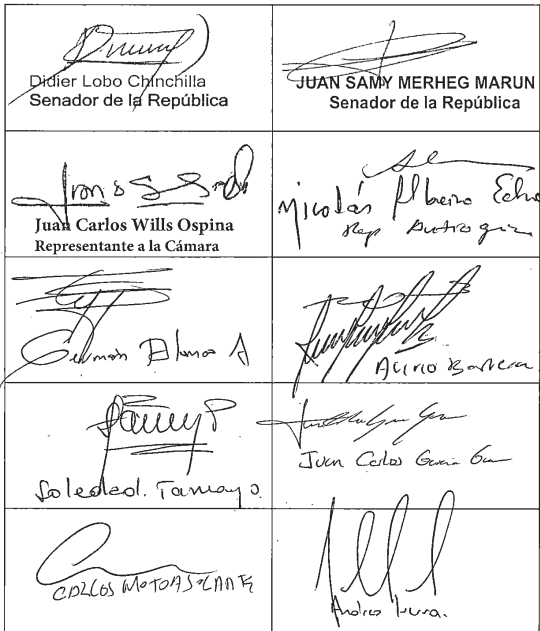 Didier Lobo Chinchilla
Senador de la República
JUAN SAMY MERHEG MARUN
Senador de la República
Juan Carlos Wills Ospina
Representante a la Cámara
Nicolás Albeiro Echo
Rep Antioquia
Germán Blanco A
Acirio Barrera
Soledad. Tamayo.
Juan Carlos Garcia Gom
CARLOS MOTOA SOLARTE
Andres